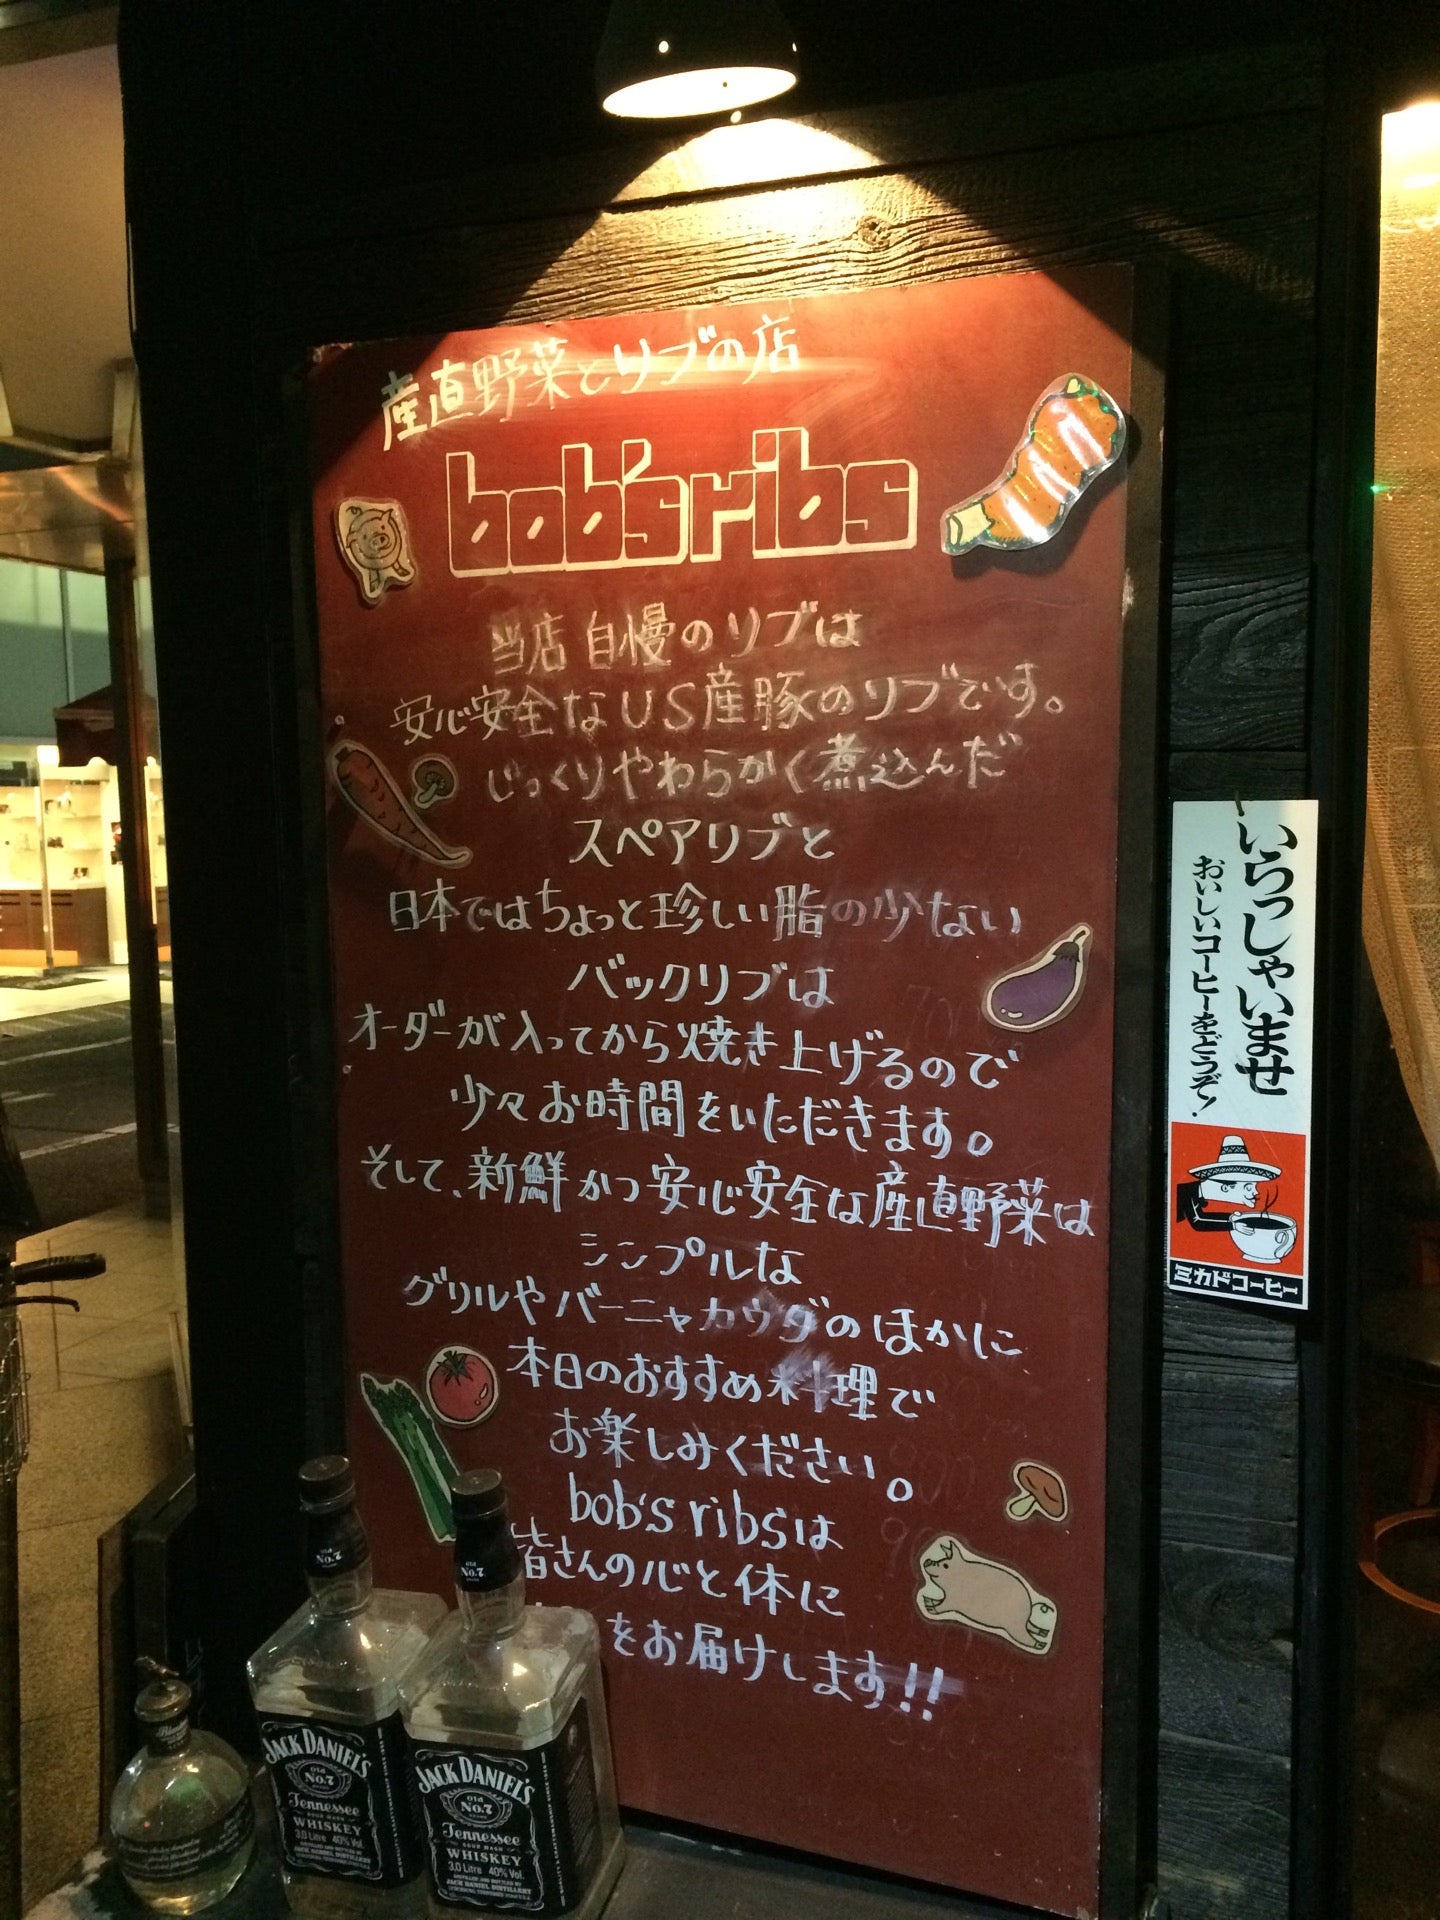 産直野菜とリブの店
bob's ribs
当店自慢のリブは
安心安全なUS産豚のリブです。
じっくりやわらかく煮込んだ
スペアリブと
日本ではちょっと珍しい脂の少ない
バックリブは
オーダーが入ってから焼き上げるので
少々お時間をいただきます。
そして、新鮮かつ安心安全な産直野菜は
シンプルな
グリルやバーニャカウダのほかに
本日のおすすめ料理で
お楽しみください。
bob's ribsは
皆さんの心と体に
をお届けします!!
いらっしゃいませ
おいしいコーヒーをどうぞ!
ミカドコーヒー
No.7
JACK DANIEL'S
Old
No.7
Tennessee
SOUR MASH
WHISKEY
3,0 Litre 40% Vol.
No.7
JACK DANIEL'S
Old
No.7
Tennessee
SOUR MASH
WHISKEY
3,0 Litre 40% Vol.